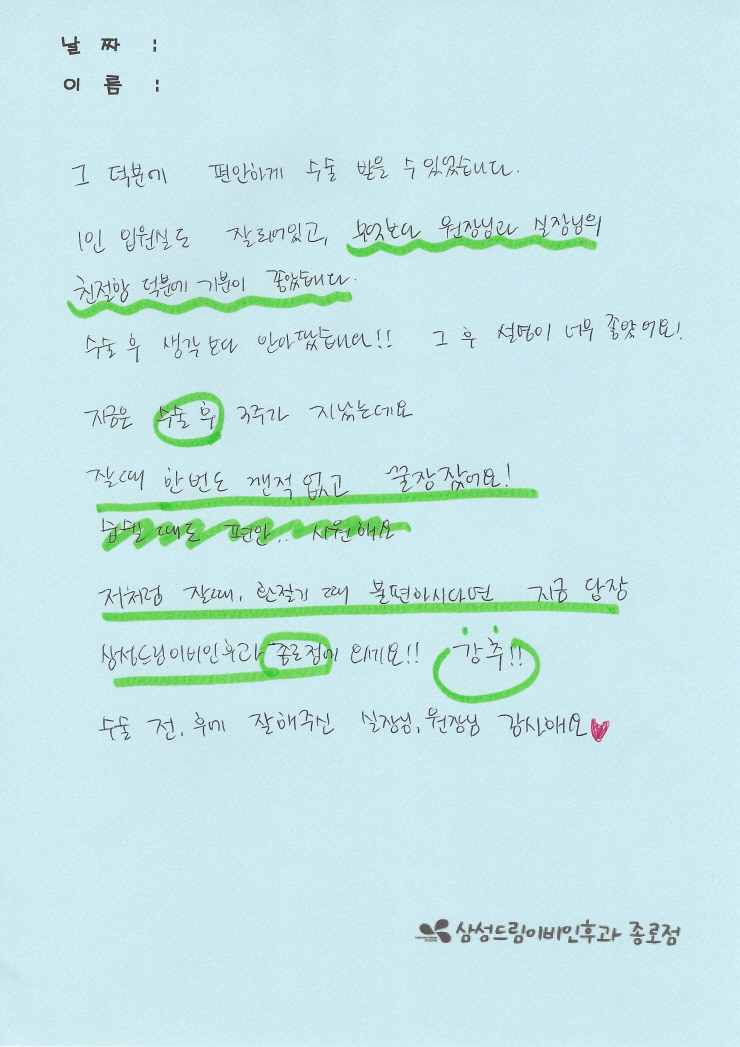 날 짜 :
이 름 :
그 덕분에 편안하게 수술 받을 수 있었습니다.
1인 입원실도 잘되어있고, 무엇보다 원장님과 실장님의
친절함 덕분에 기분이 좋았습니다.
수술 후 생각보다 안아팠습니다!! 그 후 설명이 너무 좋았어요!
지금은 수술 후 3주가 지났는데요
잘때 한번도 깬적 없고 꿀잠잤어요!
숨쉴 때도 편안.. 시원해요
저처럼 잘때, 환절기 때 불편하시다면 지금 당장
삼성드림이비인후과 종로점에 오세요!! 강추!!
수술 전, 후에 잘해주신 실장님, 원장님 감사해요
삼성드림이비인후과 종로점